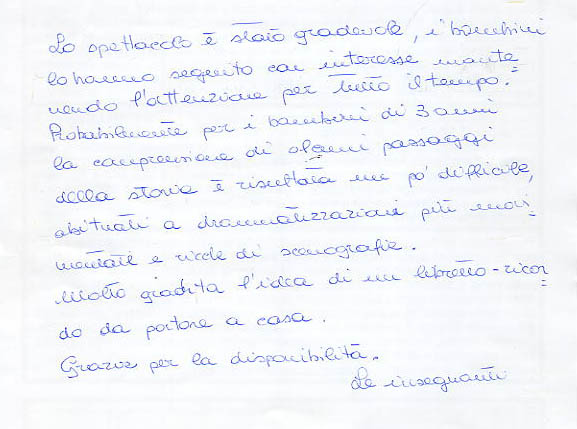 Lo spettacolo è stato gradevole, i bambini
lo hanno seguito con interesse mante=
nendo l'attenzione per tutto il tempo.
Probabilmente per i bambini di 3 anni
la comprensione di alcuni passaggi
della storia è risultata un po' difficile,
abituati a drammatizzazioni più movi=
mentate e ricche di scenografie.
Molto gradita l'idea di un libretto-ricor
do da portare a casa.
Grazie per la disponibilità.
Le insegnanti